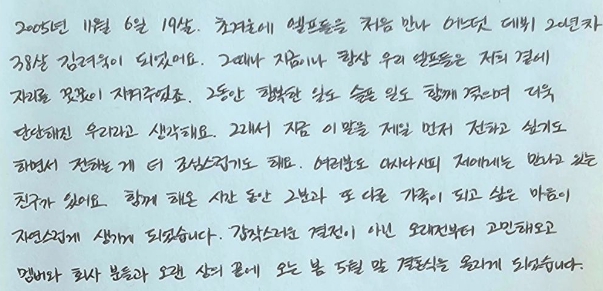 2005년 11월 6일 19살. 초겨울에 엘프들을 처음 만나 어느덧 데뷔 20년차
38살 김려욱이 되었어요. 그때나 지금이나 항상 우리 엘프들은 저희 곁에
자리를 꿋꿋이 지켜주었죠. 그동안 행복한 일도 슬픈 일도 함께 겪으며 더욱
단단해진 우리라고 생각해요. 그래서 지금 이 말을 제일 먼저 전하고 싶기도
하면서 전하는 게 더 조심스럽기도 해요. 여러분도 아시다시피 저에게는 만나고 있는
친구가 있어요. 함께 해온 시간 동안 그분과 또 다른 가족이 되고 싶은 마음이
자연스럽게 생기게 되었습니다. 갑작스러운 결정이 아닌 오래전부터 고민해오고
멤버와 회사 분들과 오랜 상의 끝에 오는 봄 5월 말 결혼식을 올리게 되었습니다.